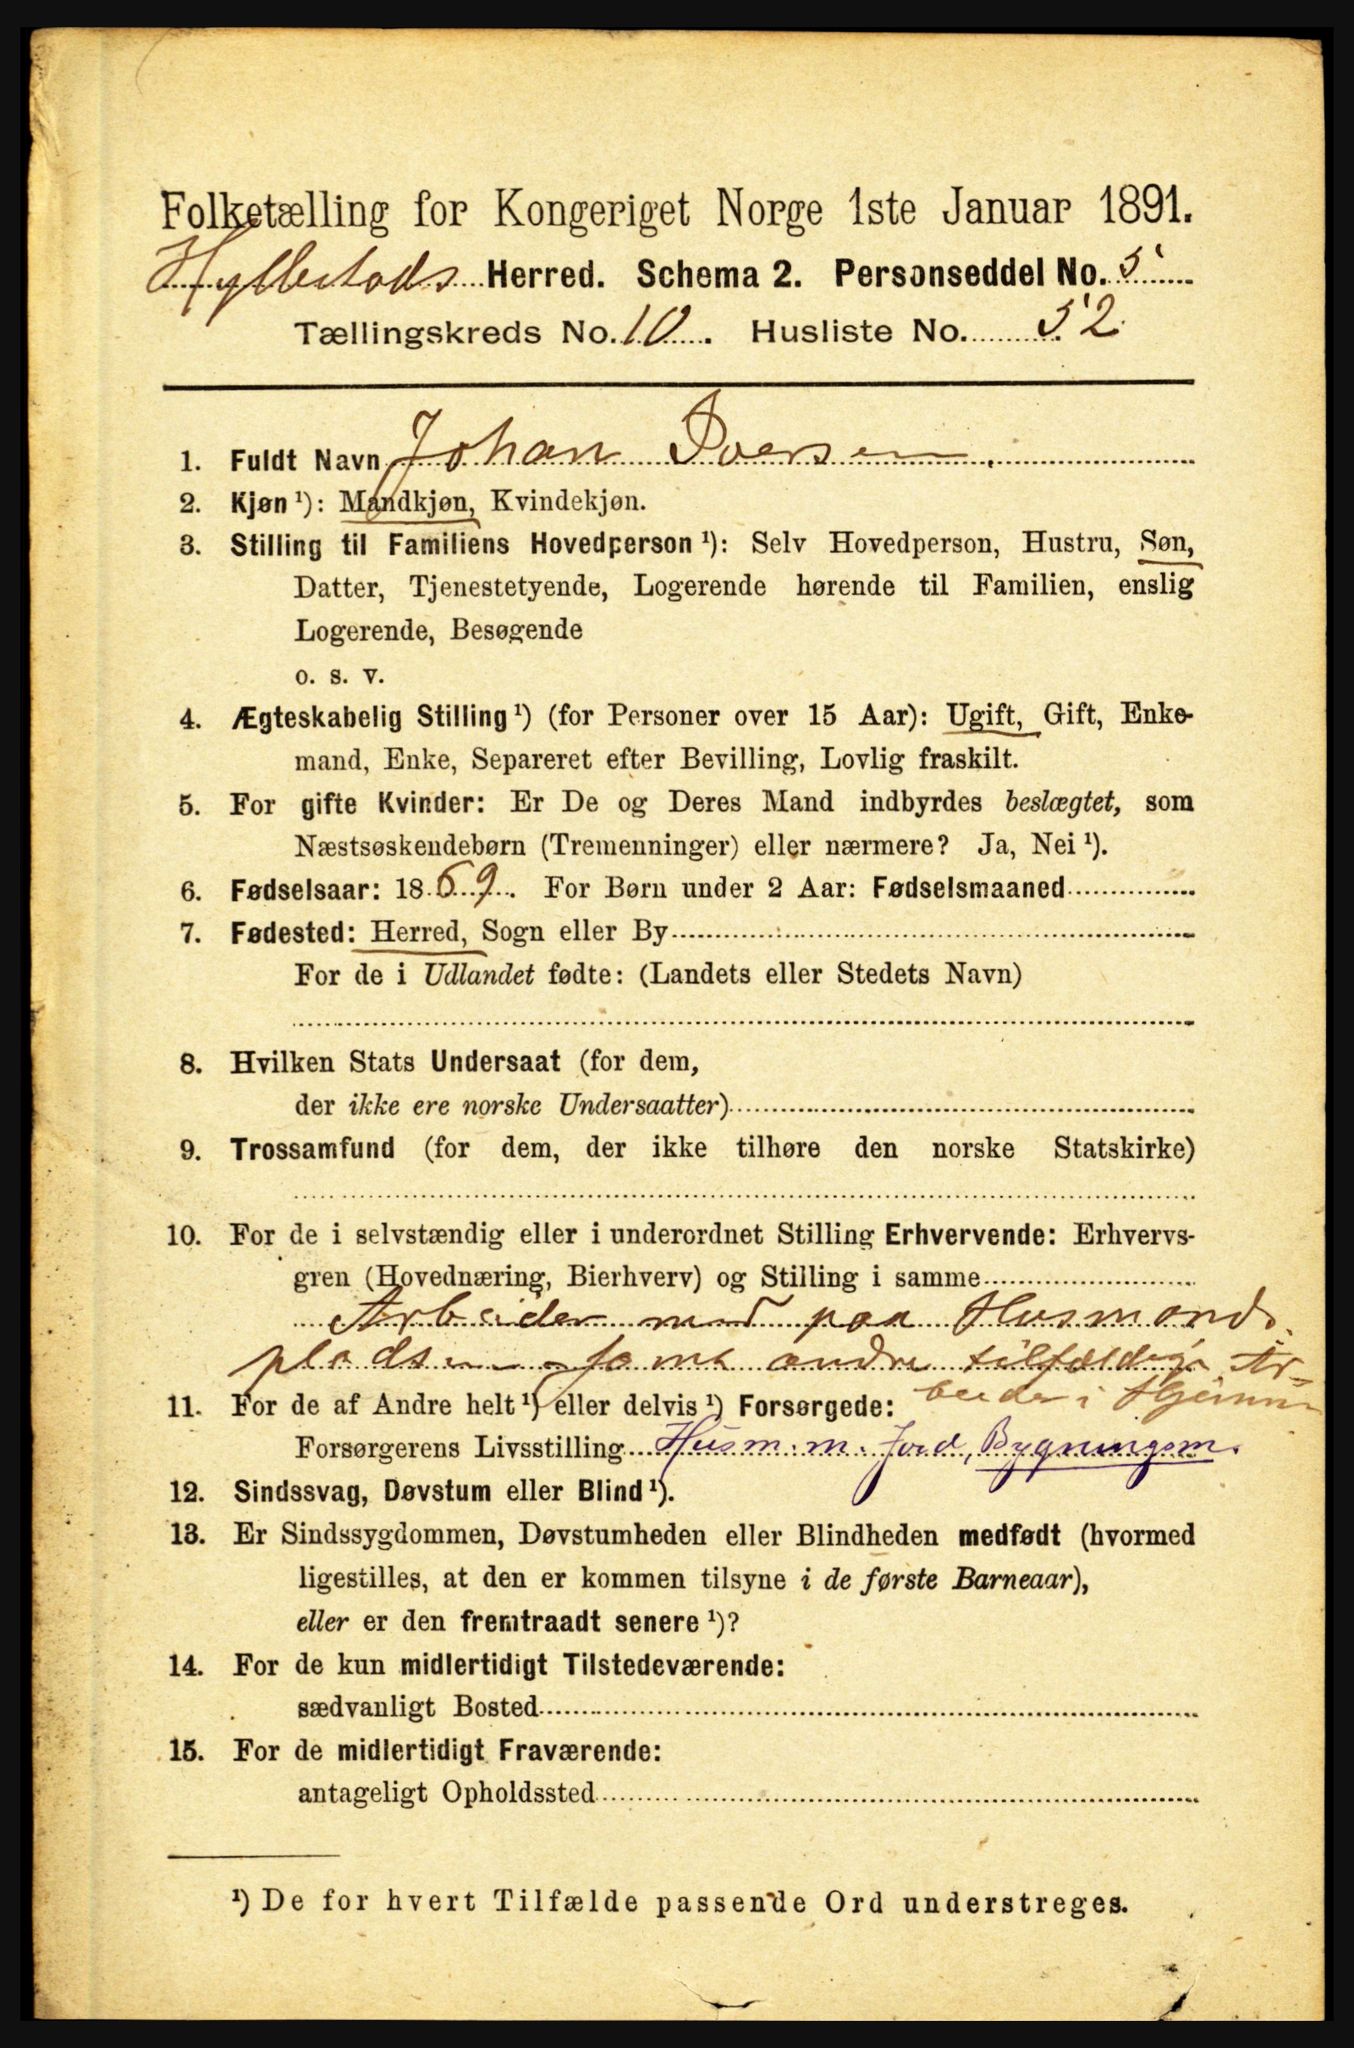 Folketælling for Kongeriget Norge 1ste Januar 1891.
Hyllestads Herred. Schema 2. Personseddel No. 5
Tællingskreds No. 10. Husliste No. 52
1. Fuldt Navn Johan Iversen
2. Kjøn ¹): Mandkjøn, Kvindekjøn.
3. Stilling til Familiens Hovedperson ¹): Selv Hovedperson, Hustru, Søn,
Datter, Tjenestetyende, Logerende hørende til Familien, enslig
Logerende, Besøgende
o. s. v.
4. Ægteskabelig Stilling ¹) (for Personer over 15 Aar): Ugift, Gift, Enke-
mand, Enke, Separeret efter Bevilling, Lovlig fraskilt.
5. For gifte Kvinder: Er De og Deres Mand indbyrdes beslægtet, som
Næstsøskendebørn (Tremenninger) eller nærmere? Ja, Nei ¹).
6. Fødselsaar: 1869. For Børn under 2 Aar: Fødselsmaaned
7. Fødested: Herred, Sogn eller By
For de i Udlandet fødte: (Landets eller Stedets Navn)
8. Hvilken Stats Undersaat (for dem,
der ikke ere norske Undersaatter)
9. Trossamfund (for dem, der ikke tilhøre den norske Statskirke)
10. For de i selvstændig eller i underordnet Stilling Erhvervende: Erhvervs-
gren (Hovednæring, Bierhverv) og Stilling i samme
Arbeider med paa Husmands
pladsen samt andre tilfældige Ar-
beider i Hjemme
11. For de af Andre helt ¹) eller delvis ¹) Forsørgede:
Forsørgerens Livsstilling Husm. m. Jord, Bygningsm.
12. Sindssvag, Døvstum eller Blind ¹).
13. Er Sindssygdommen, Døvstumheden eller Blindheden medfødt (hvormed
ligestilles, at den er kommen tilsyne i de første Barneaar),
eller er den fremtraadt senere ¹)?
14. For de kun midlertidigt Tilstedeværende:
sædvanligt Bosted
15. For de midlertidigt Fraværende:
antageligt Opholdssted
¹) De for hvert Tilfælde passende Ord understreges.